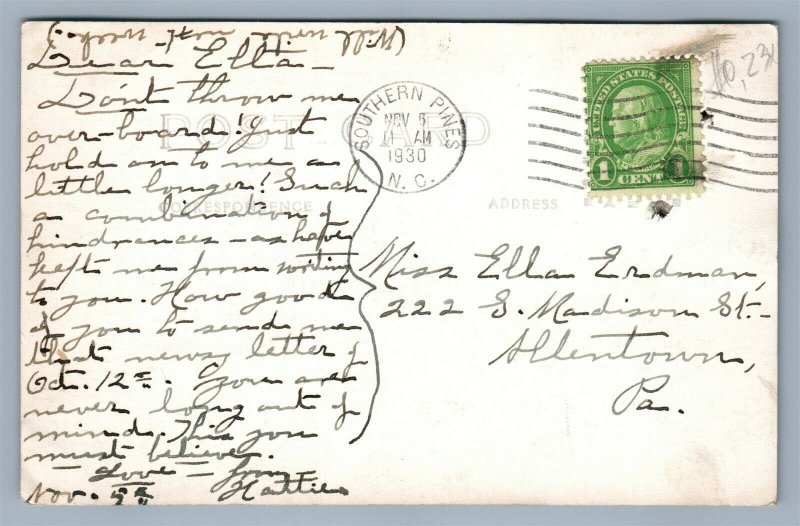 (Will write next week.)
Dear Ella -
Don't throw me
over-board! Just
hold on to me a
little longer! Such
a combination of
hindrances - as have
kept me from writing
to you. How good
of you to send me
that newsy letter of
Oct. 12th. You are
never long out of
mind. This you
must believe.
- Love - from -
Nov. 5th Hattie
POST CARD
CORRESPONDENCE
ADDRESS
SOUTHERN PINES
NOV 6
AM
1930
N. C.
UNITED STATES POSTAGE
1 CENT 1
Miss Ella Erdman,
222 S. Madison St.-
Allentown,
Pa.